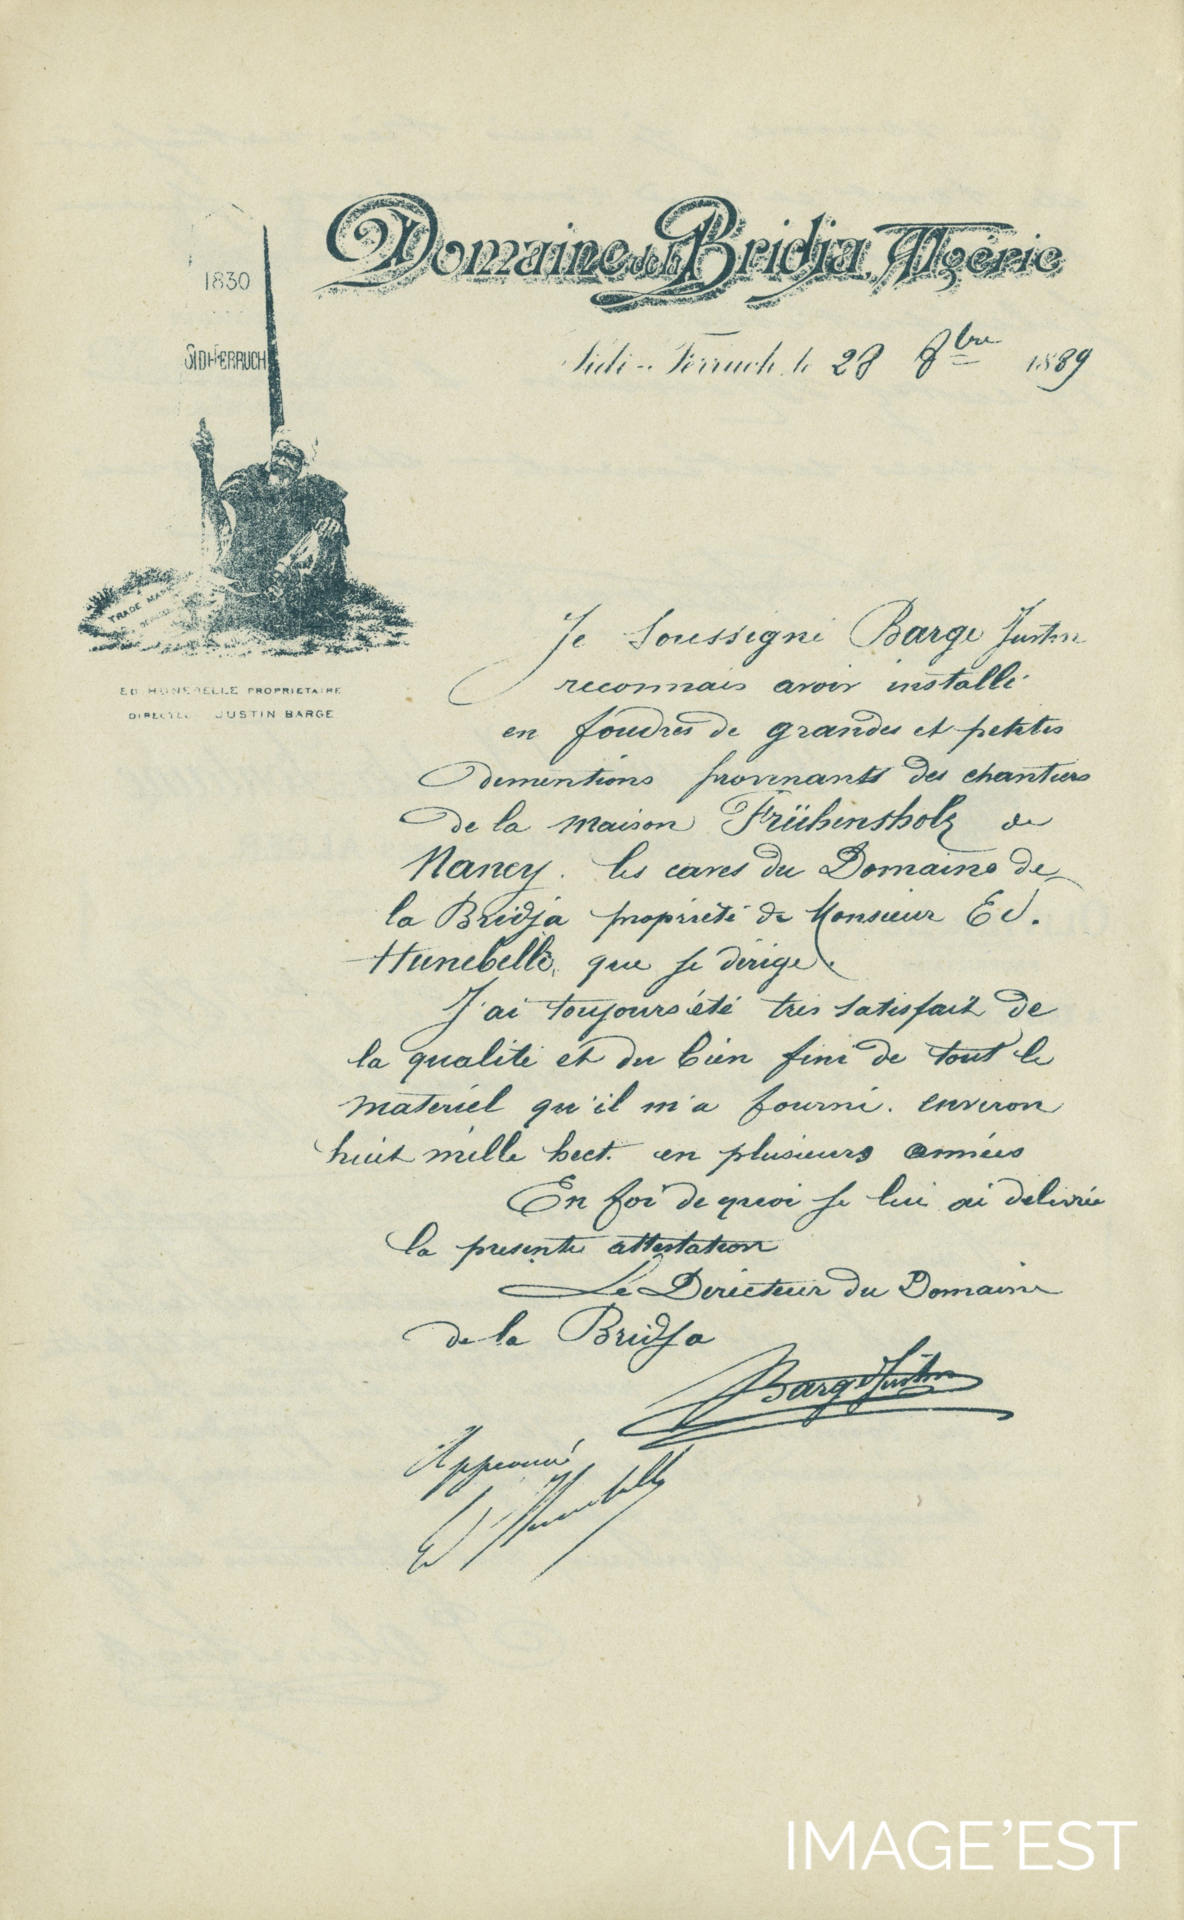 Domaine de la Bridja, Algérie
1830
SIDI-FERRUCH
Sidi-Ferruch, le 28 8bre 1889
TRADE MARK
ED. HUNEBELLE PROPRIETAIRE
DIRECTEUR JUSTIN BARGE
Je Soussigné Barge Justin
reconnais avoir installé
en foudres de grandes et petites
dementions provenants des chantiers
de la maison Frühinsholz de
Nancy. les caves du Domaine de
la Bridja propriété de Monsieur Ed.
Hunebelle, que je dirige.
J'ai toujours été tres satisfait de
la qualité et du bien fini de tout le
materiel qu'il m'a fourni. environ
huit mille hect. en plusieurs années
En foi de quoi je lui ai delivrée
la presente attestation
Le Directeur du Domaine
de la Bridja
Barge Justin
Approuvé
Ed Hunebelle
IMAGE'EST